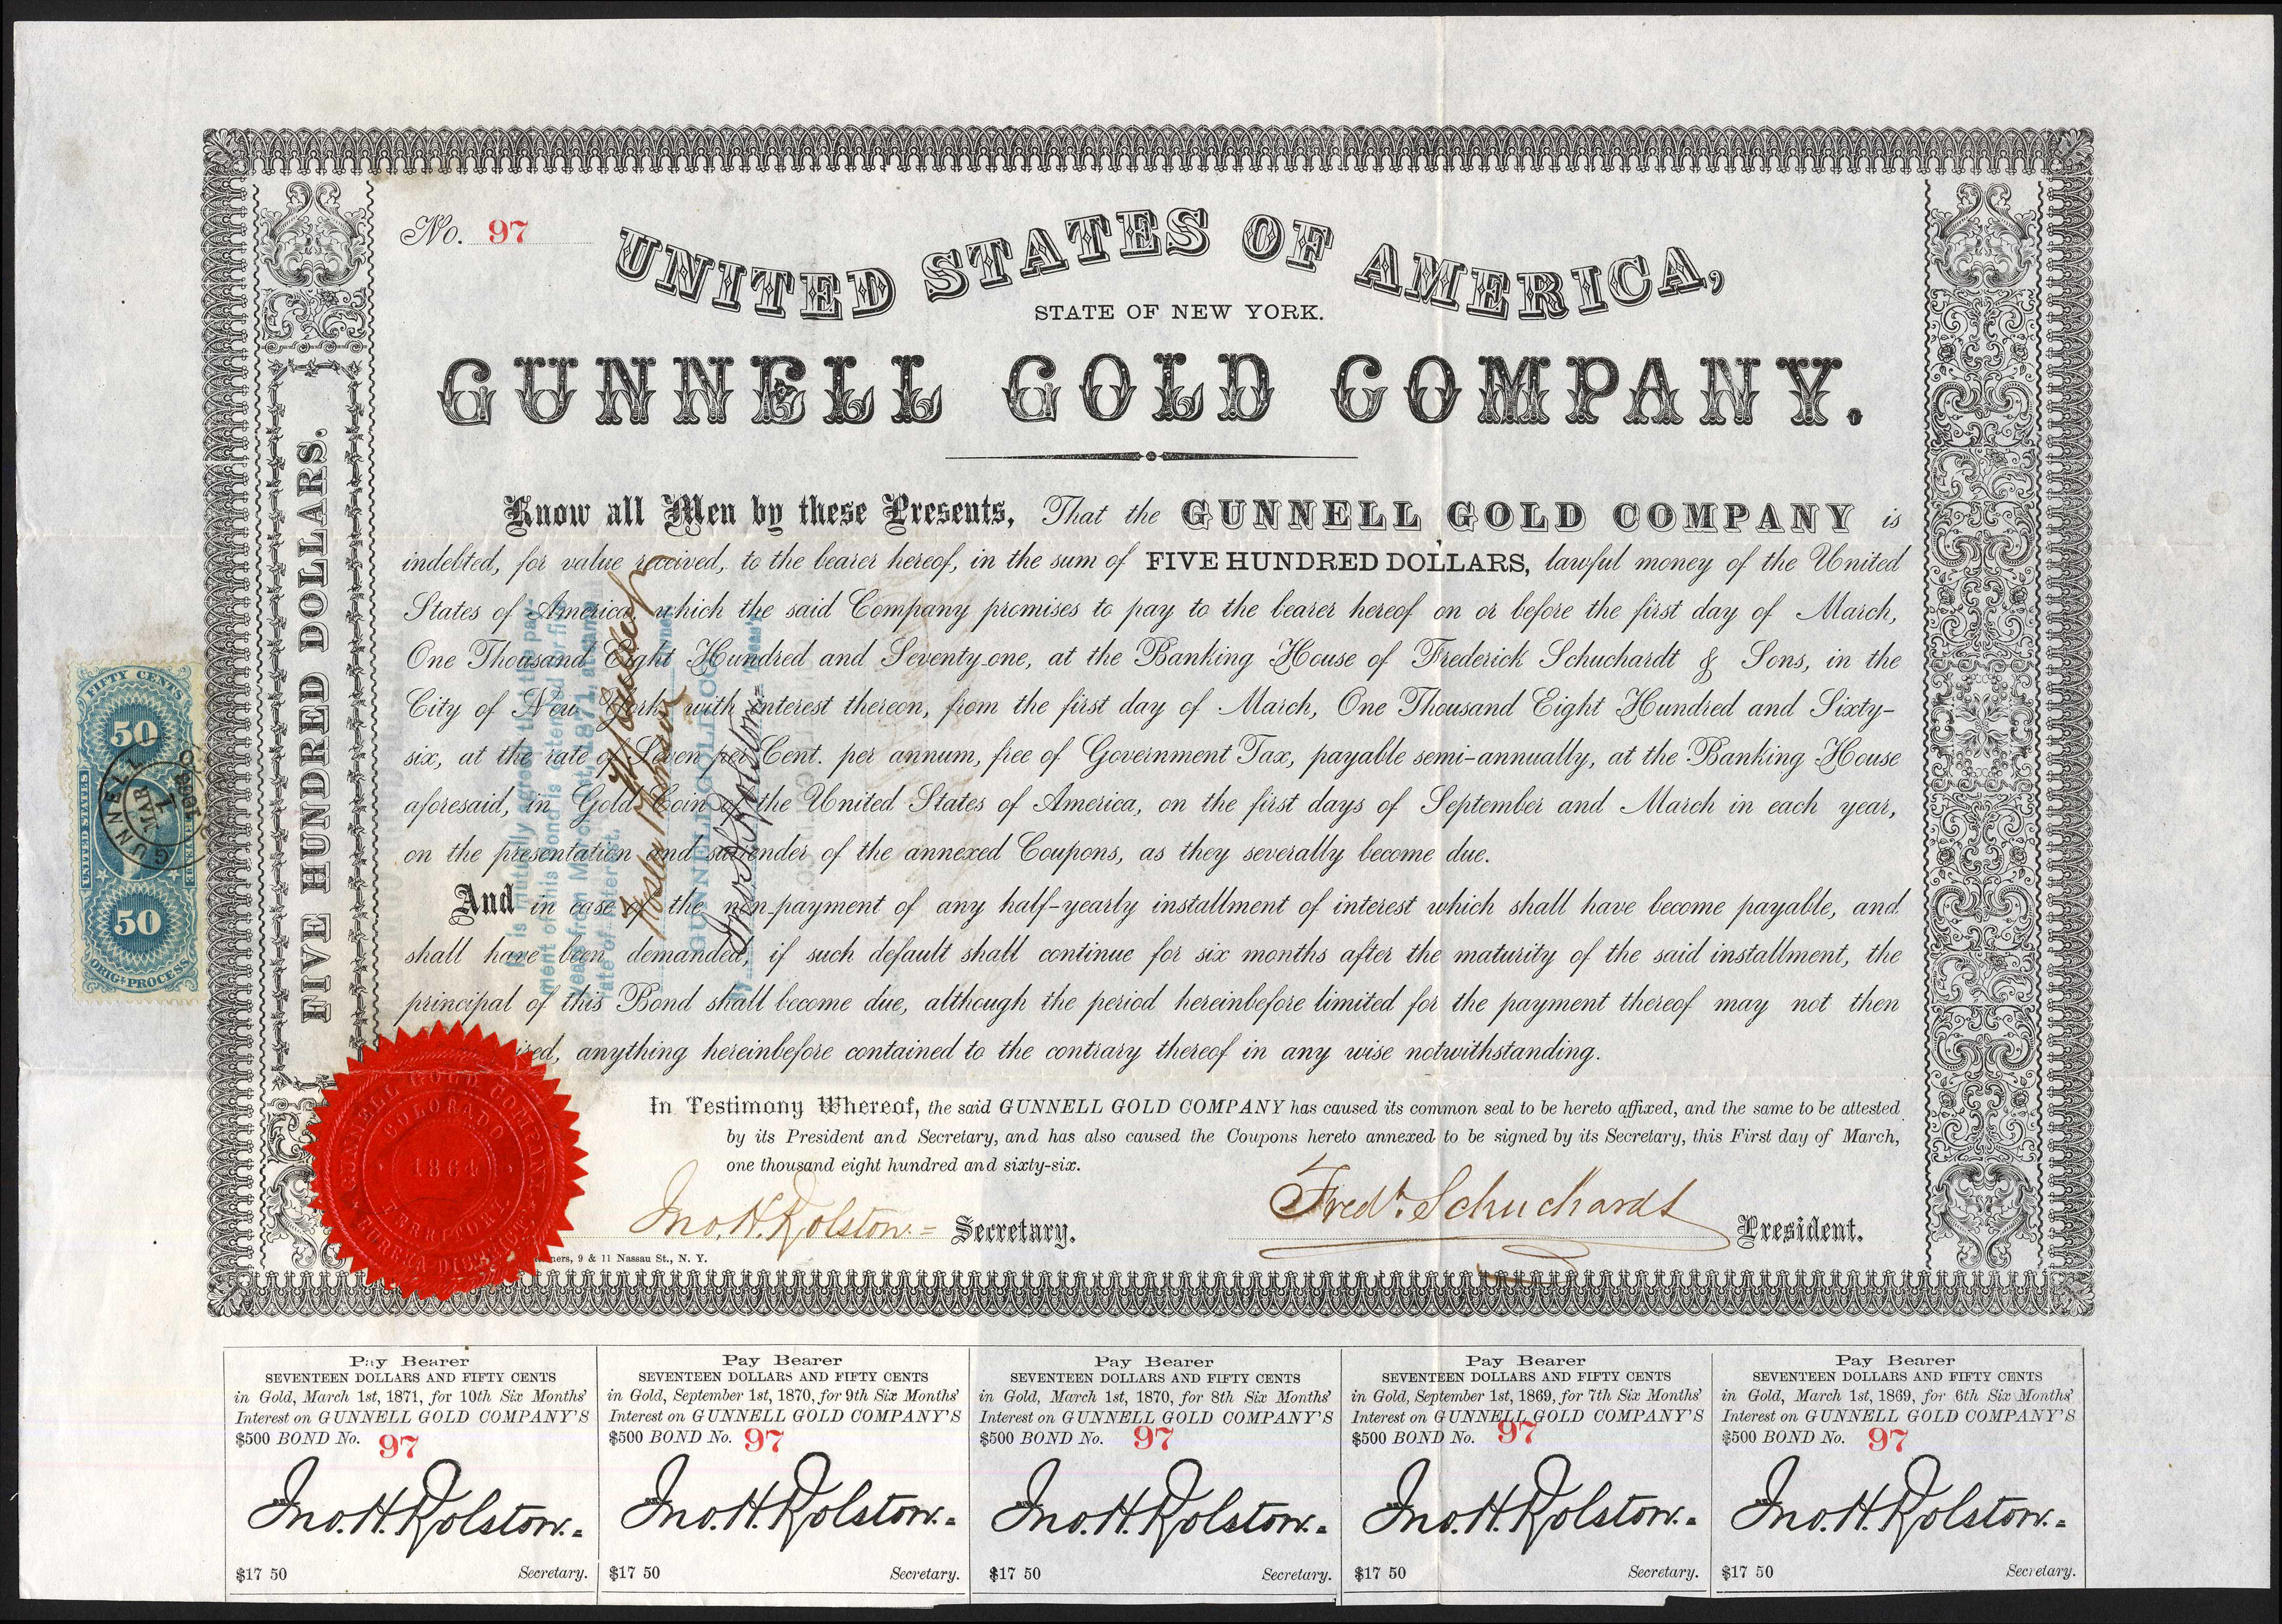 No. 97
UNITED STATES OF AMERICA,
STATE OF NEW YORK.
GUNNELL GOLD COMPANY.
FIVE HUNDRED DOLLARS.
Know all Men by these Presents, That the GUNNELL GOLD COMPANY is
indebted, for value received, to the bearer hereof, in the sum of FIVE HUNDRED DOLLARS, lawful money of the United
States of America, which the said Company promises to pay to the bearer hereof on or before the first day of March,
One Thousand Eight Hundred and Seventy-one, at the Banking House of Frederick Schuchardt & Sons, in the
City of New York, with interest thereon, from the first day of March, One Thousand Eight Hundred and Sixty-
six, at the rate of Seven per Cent. per annum, free of Government Tax, payable semi-annually, at the Banking House
aforesaid, in Gold Coin of the United States of America, on the first days of September and March in each year,
on the presentation and surrender of the annexed Coupons, as they severally become due.
And in case of the non-payment of any half-yearly installment of interest which shall have become payable, and
shall have been demanded, if such default shall continue for six months after the maturity of the said installment, the
principal of this Bond shall become due, although the period hereinbefore limited for the payment thereof may not then
ired, anything hereinbefore contained to the contrary thereof in any wise notwithstanding.
In Testimony Whereof, the said GUNNELL GOLD COMPANY has caused its common seal to be hereto affixed, and the same to be attested
by its President and Secretary, and has also caused the Coupons hereto annexed to be signed by its Secretary, this First day of March,
one thousand eight hundred and sixty-six.
Jno. H. Rolston. Secretary.
Fredk. Schuchardt President.
ners, 9 & 11 Nassau St., N. Y.
GUNNELL GOLD COMPANY
COLORADO
1864
TERRITORY
FIFTY CENTS
50
UNITED STATES
REVENUE
50
ORIG. PROCESS
GUNNELL
MAR
1
It is mutually agreed that the pay-
ment of this bond is extended for five
years from March 1st, 1871, at same
rate of interest.
GUNNELL GOLD CO.
Jno. H. Rolston
Pay Bearer
SEVENTEEN DOLLARS AND FIFTY CENTS
in Gold, March 1st, 1871, for 10th Six Months'
Interest on GUNNELL GOLD COMPANY'S
$500 BOND No. 97
Jno. H. Rolston.
$17 50 Secretary.
Pay Bearer
SEVENTEEN DOLLARS AND FIFTY CENTS
in Gold, September 1st, 1870, for 9th Six Months'
Interest on GUNNELL GOLD COMPANY'S
$500 BOND No. 97
Jno. H. Rolston.
$17 50 Secretary.
Pay Bearer
SEVENTEEN DOLLARS AND FIFTY CENTS
in Gold, March 1st, 1870, for 8th Six Months'
Interest on GUNNELL GOLD COMPANY'S
$500 BOND No. 97
Jno. H. Rolston.
$17 50 Secretary.
Pay Bearer
SEVENTEEN DOLLARS AND FIFTY CENTS
in Gold, September 1st, 1869, for 7th Six Months'
Interest on GUNNELL GOLD COMPANY'S
$500 BOND No. 97
Jno. H. Rolston.
$17 50 Secretary.
Pay Bearer
SEVENTEEN DOLLARS AND FIFTY CENTS
in Gold, March 1st, 1869, for 6th Six Months'
Interest on GUNNELL GOLD COMPANY'S
$500 BOND No. 97
Jno. H. Rolston.
$17 50 Secretary.